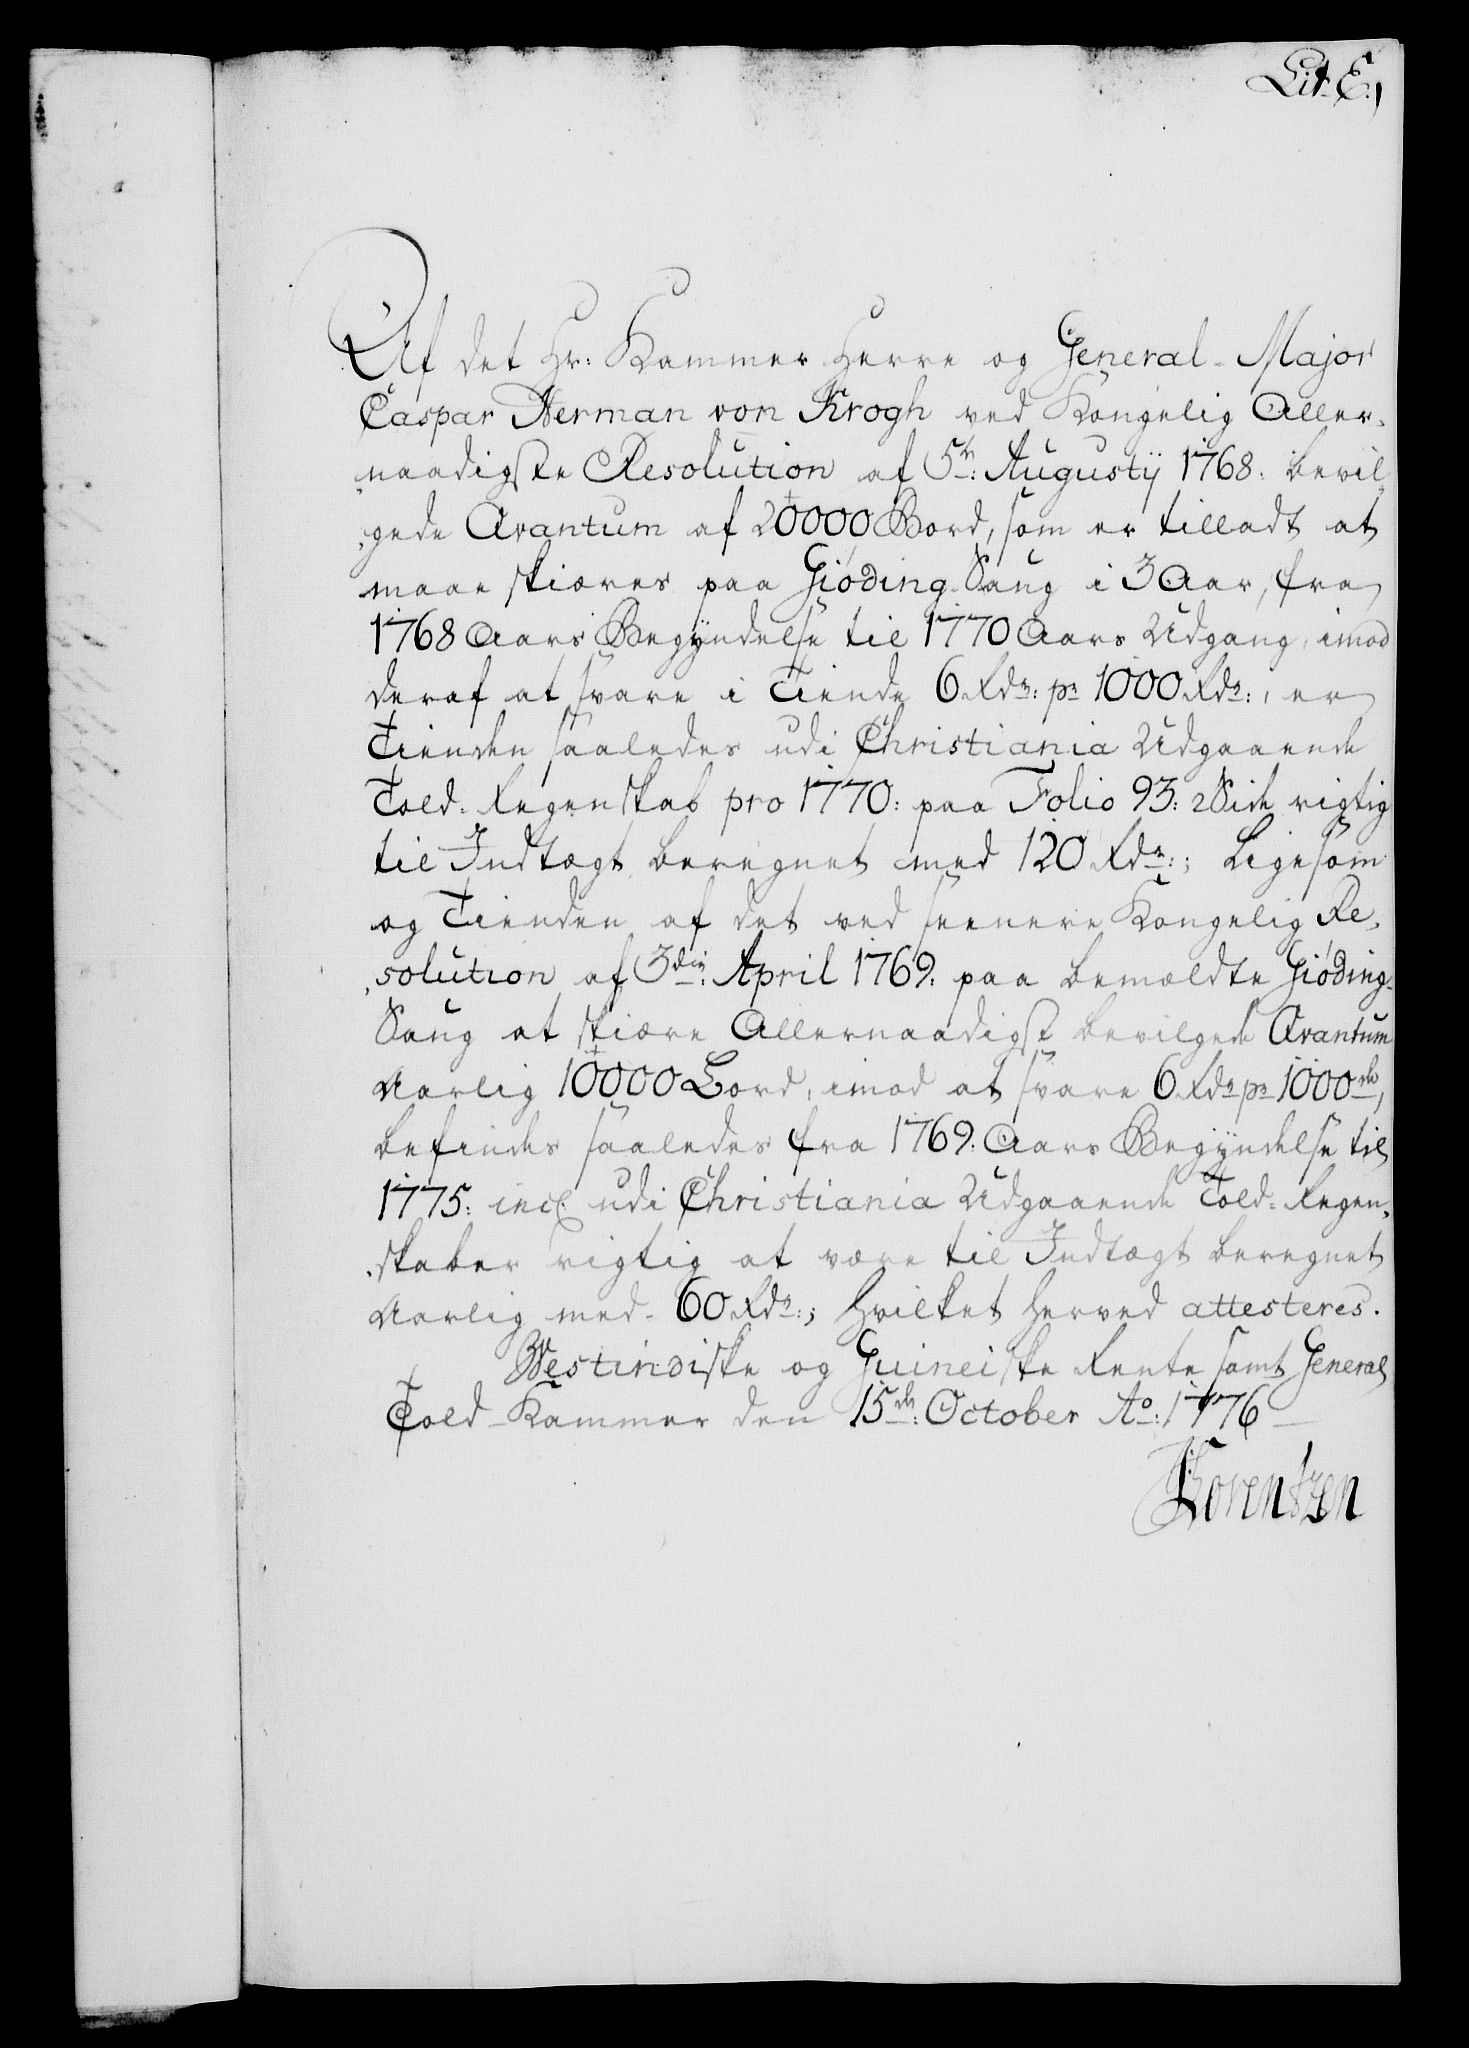 Lit. E.,
Af det Hr: Kammer Herre og General-Major
Caspar Herman von Krogh ved Kongelig Aller-
naadigste Resolution af 5te: Augustij 1768. bevil-
gede Qvantum af 20000 Bord, som er tilladt at
maae skiæres paa Giöding Saug i 3 Aar, fra
1768 Aars Begÿndelse til 1770 Aars Udgang, imod
deraf at svare i Tiende 6 Rdr: pr 1000 Rdr:, er
Tienden saaledes udi Christiania Udgaaende
Told-Regenskab pro 1770: paa Folio 93: 2 Side rigtig
til Indtægt beregnet med 120 Rdr:; Ligesom
og Tienden af det ved seenere Kongelig Re-
solution af 3die: April 1769. paa bemældte Giöding-
Saug at skiære Allernaadigst bevilgede Qvantum
Aarlig 10000 Bord, imod at svare 6 Rdr pr 1000de,
befindes saaledes fra 1769. Aars Begÿndelse til
1775: incl. udi Christiania Udgaaende Told-Regen-
skaber rigtig at være til Indtægt beregnet
Aarlig med 60 Rdr:; Hvilket herved attesteres.
Westindiske og Guineiske Rente samt General
Told-Kammer den 15de: October Ao: 1776
Lorentzen